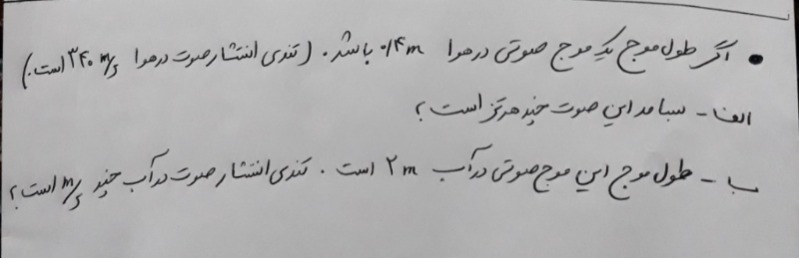 • اگر طول موج یک موج صوتی در هوا ۰/۴ m باشد. (تندی انتشار صوت در هوا ۳۴۰ m/s است.)
الف - بسامد این صوت چند هرتز است؟
ب - طول موج این موج صوتی در آب ۲ m است. تندی انتشار صوت در آب چند m/s است؟